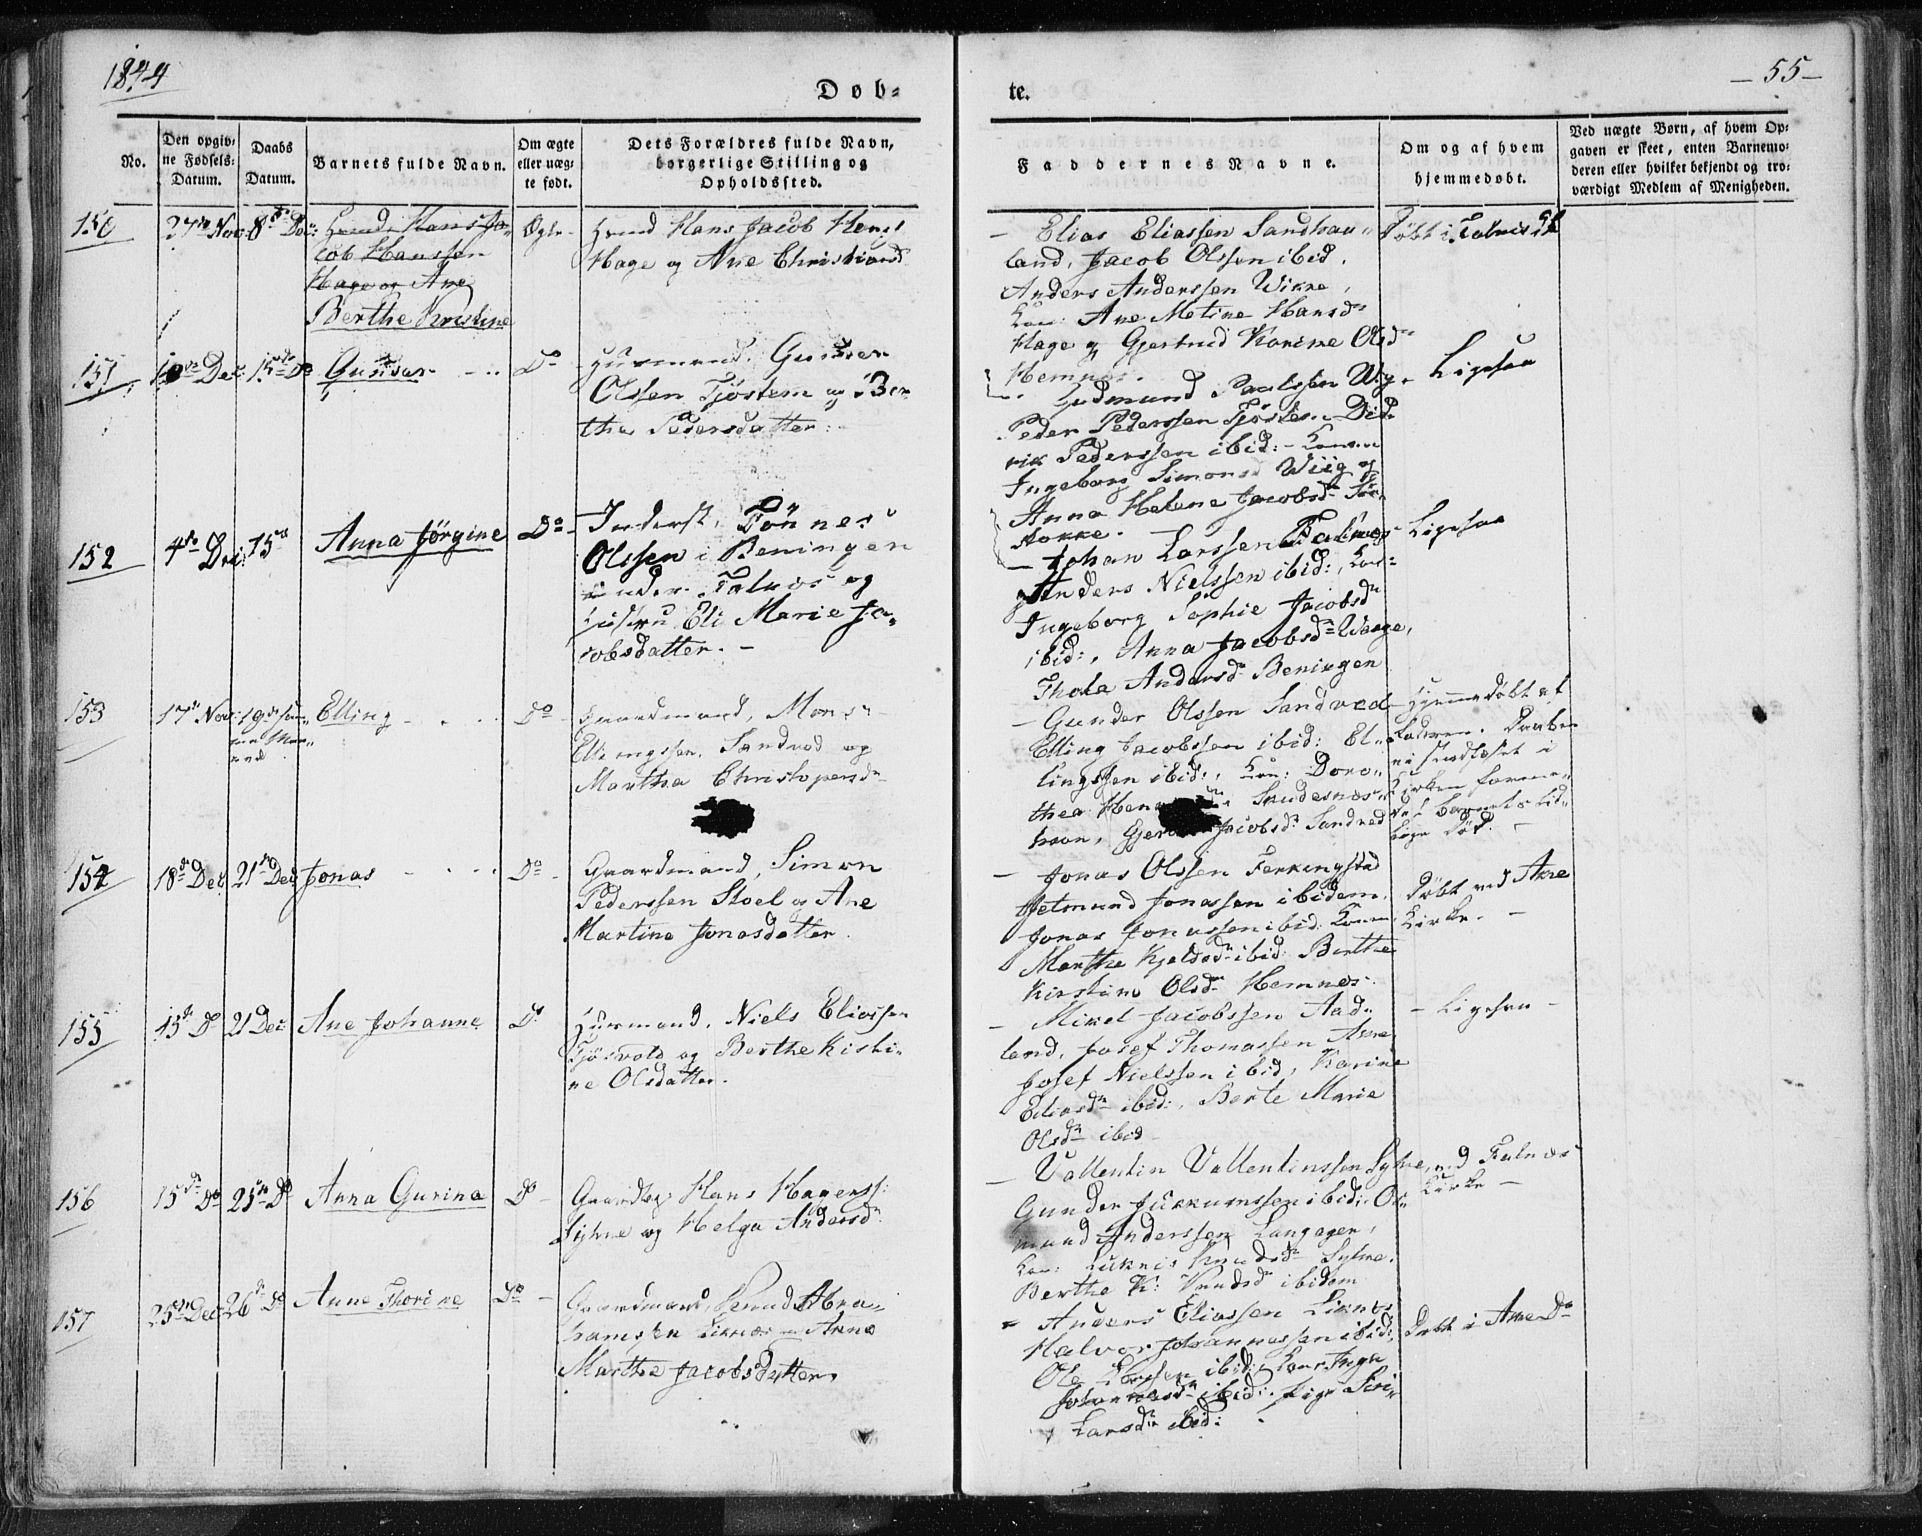 1844
Døb-
te.
- 55 -
No.
Den opgiv-
ne Fødsels-
Datum.
Daabs
Datum.
Barnets fulde Navn.
Om ægte
eller uæg-
te født.
Dets Forældres fulde Navn,
borgerlige Stilling og
Opholdssted.
Faddernes Navne.
Om og af hvem
hjemmedøbt.
Ved uægte Børn, af hvem Op-
gaven er skeet, enten Barnemo-
deren eller hvilket bekjendt og tro-
værdigt Medlem af Menigheden.
150
27de Nov:
8de Dec:
Hans Ja-
cob Hanssen
Hage og Ane
Berthe Kristine
Ægte
Hans Jacob Hans
Hage og Ane Christiansd
- Elias Eliassen Sandhau-
land, Jacob Olssen ibid,
Anders Anderssen Wikre,
Kon: Ane Metine Hansdr
Hage og Gjertrud Karine Olsdr
Hemnes.
Døbt i Falnæs
151
Dec:
15de Do
Gunder
Do
Huusmand, Gunder
Olssen Tjøstem og Ber-
the Pedersdatter.
Gudmund Paulssen Wig
Peder Pederssen Tjøstem Did-
rik Pederssen ibid: - Konen
Ingeborg Simonsd Wiig og
Anna Helene Jacobsd
stokke.
Ligesaa
152
4de Dec:
15de
Anna Jörgine
Do
Inderst, Tönnes
Olssen i Beningen
under Falnæs og
Hustru Eli Marie Ja-
cobsdatter. -
- Johan Larssen Falnæs
Anders Nielssen ibid:, Kon:
Ingeborg Sophie Jacobsdr
ibid:, Anna Jacobsdr Waage,
Thola Andersdr Beningen
Ligesaa
153
17de Nov:
19de
Elling
Do
Gaardmand, Mons
Ellingssen Sandved og
Martha Christophersdr
- Gunder Olssen Sandved
Elling Jacobssen ibid: El-
lingssen ibid:, Kon: Doro-
thea
Skudesnæs-
havn, Jacobsdr Sandved
Hjemmedøbt af
Faderen. Daaben
ei stadfæstet i
Kirken forme-
barnets tid-
lige Død. -
154
18de Dec
21de Dec
Jonas
Do
Gaardmand, Simon
Pederssen Stoel og Ane
Martine Jonasdatter.
- Jonas Olssen Ferkingstad
Jetmund Jonassen ibidem,
Jonas Jonassen ibid, Konen
Marthe Kjelsdr ibid: Berthe
Kirstine Olsdr Hemnes.
Døbt ved Akre
Kirke. -
155
15de Do
21 Dec:
Ane Johanne
Do
Huusmand, Niels Eliassen
Tjösvold og Berthe Kisti-
ne Olsdatter.
- Mikel Jacobssen Aad-
land, Josef Thomassen Akre
Josef Nielssen ibid, Karine
Eliasdr ibid:, Berte Marie
Olsdr ibid
- Ligesaa -
156
15de Do
25de Do
Anna Gurina
Do
Hans Hagenss:
Syhre og Helga Andersdr
- Vallentin Vallentinssen Syhre,
Gunder ibid:, Os-
mund Anderssen Langager,
Kon: Knudsdr Syhre,
Berthe K: Knudsdr ibidem
ved Falnæs
Kirke -
157
25de Dec:
26de Do
Anne Thorine
Do
Gaardmand, Knud Abra-
hamssen Liknæs og Anne
Marthe Jacobsdatter.
- Anders Eliassen Liknæs
Halvor Johannessen ibid:,
Ole ibid:, Kone: Inga
Johannesdr ibid:. Pige Siri
Larsdr ibid:
Døbt i Akre Do